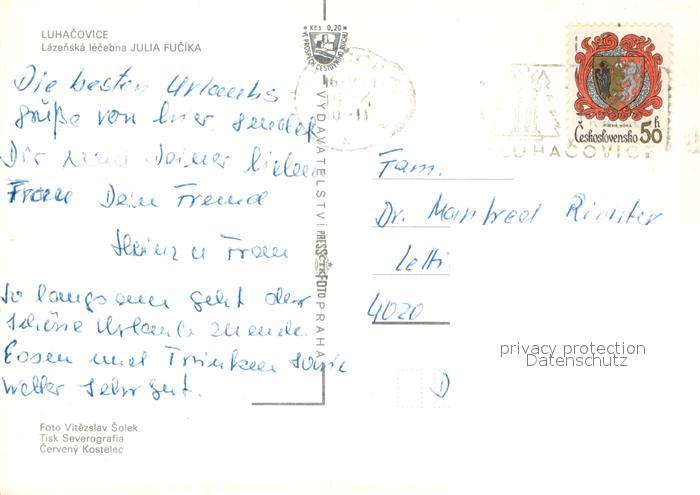 LUHAČOVICE
Lázeňská léčebna JULIA FUČÍKA
Kčs 0,20
VE PROSPĚCH CESTOVNÍHO RUCHU
Československo 50 h
LUHAČOVICE
VYDAVATELSTVÍ PRESSFOTO PRAHA
Die besten Urlaubs-
grüße von hier sendet
Dir und Deiner lieben
Frau Dein Freund
Heinz u Frau
So langsam geht der
schöne Urlaub zuende.
Essen und Trinken sowie
Wetter sehr gut.
Fam.
Dr. Manfred Richter
4020
D
privacy protection
Datenschutz
Foto Vítězslav Šolek
Tisk Severografia
Červený Kostelec